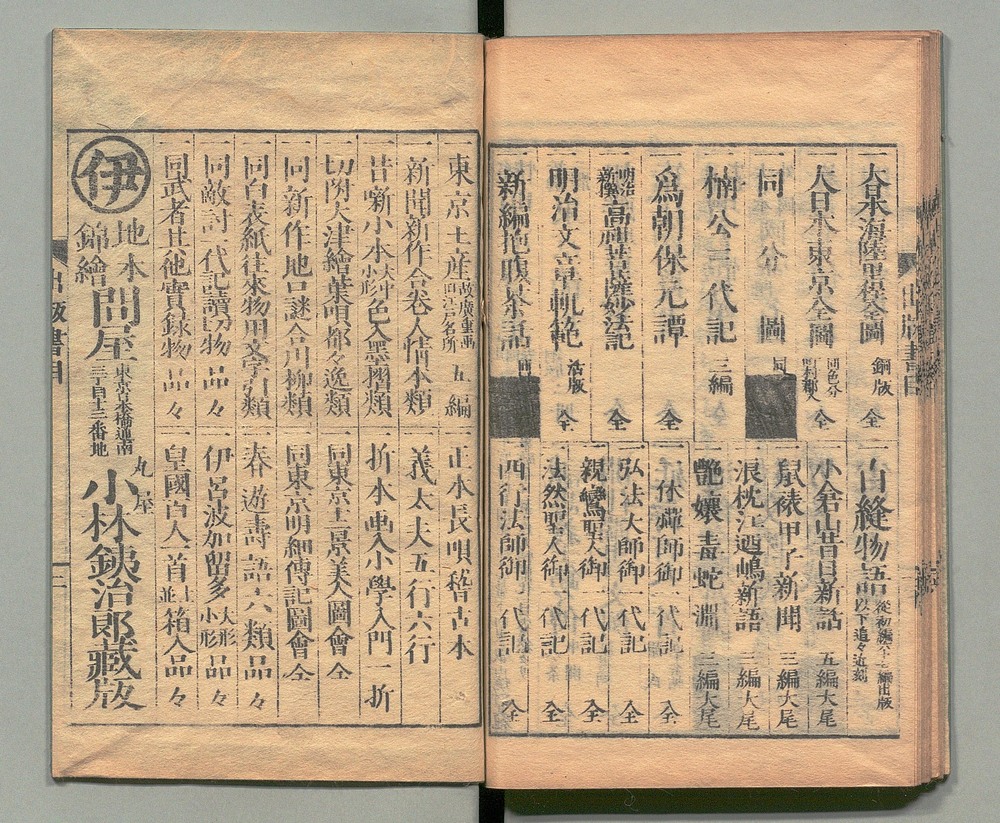 出版書目
一大日本海陸里程全圖 銅版 全
一大日本東京全圖 同色分 町村郡入 全
一同 区分圖 同
一楠公三代記 三編
一為朝保元譚 全
一明治新像高祖菩薩妙法記 全
一明治文章軌範 活版 全
一新編抱腹茶話 同
一百縫物語 従初編今三編出版 以下追々近刻
一小倉山昔日新話 五編大尾
一鼠裱甲子新聞 三編大尾
一浪枕江廼嶋新語 三編大尾
一艶嬢毒蛇淵 三編大尾
一一休禪師御一代記 全
一弘法大師御一代記 全
一親鸞聖人御一代記 全
一法然聖人御一代記 全
一西行法師御一代記 全
一東京土産 故廣重画 四十八名所 五編
一新聞新作合巻人情本類
一昔噺小本 大中小形 色入墨摺類
一切附大津繪葉唄都々逸類
一同新作地口謎合川柳類
一同白表紙往来物用文字引類
一同敵討一代記讀切物 品々
一同武者其他實録物 品々
一正本長唄稽古本
一義太夫五行六行
一折本画入小學入門 一折
一同東京十二景美人圖會 全
一同東京明細傳記圖會 全
一春遊壽語六類 品々
一伊呂波加留多 大形 小形 品々
一皇國百人一首 並上 箱入品々
伊
地本
錦繪
問屋
東京京橋通南
二丁目十三番地
丸屋
小林鉄治郎藏版
出版書目
二